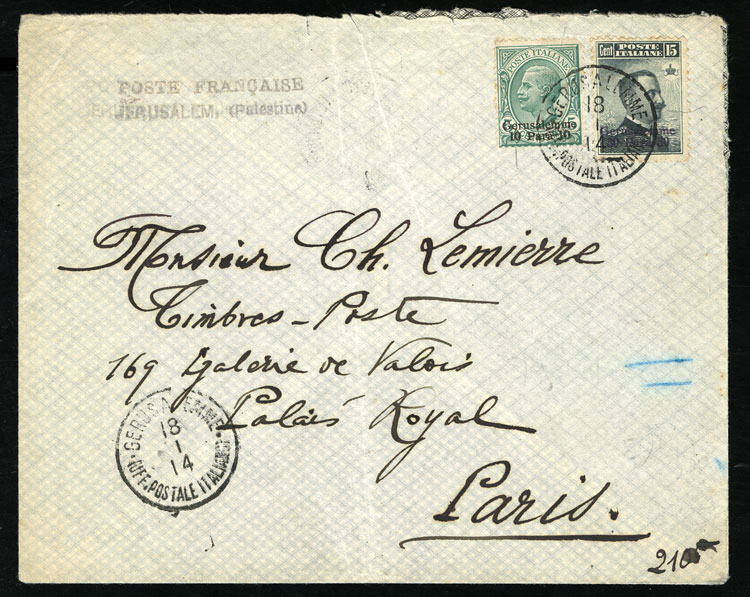 POSTE FRANÇAISE
JERUSALEM, (Palestine)
POSTE ITALIANE
Gerusalemme
10 Para 10
Cent POSTE ITALIANE 15
Gerusalemme
GERUSALEMME
18
1
14
(UFF. POSTALE ITALIANO)
Monsieur Ch. Lemierre
Timbres-Poste
169 Galerie de Valois
Palais Royal
Paris.
GERUSALEMME
18
1
14
(UFF. POSTALE ITALIANO)